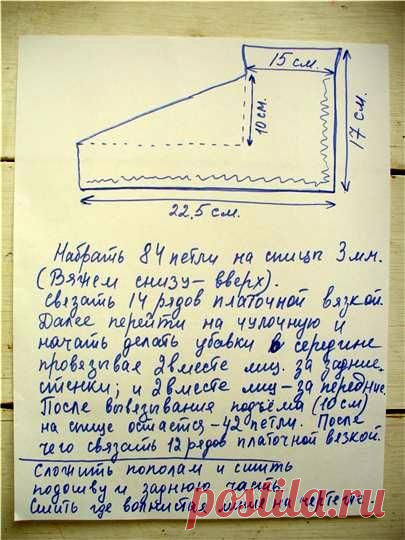 15 см.
10 см.
17 см.
22,5 см.
Набрать 84 петли на спицы 3 мм.
(Вяжем снизу – вверх).
Связать 14 рядов платочной вязкой.
Далее перейти на чулочную и
начать делать убавки в середине
провязывая 2 вместе лиц. за задние
стенки; и 2 вместе лиц – за передние.
После вывязывания подъёма (10 см)
на спице остаётся – 42 петли. После
чего связать 12 рядов платочной вязкой.
Сложить пополам и сшить
подошву и заднюю часть
Сшить где волнистая линия на чертеже.
postila.ru